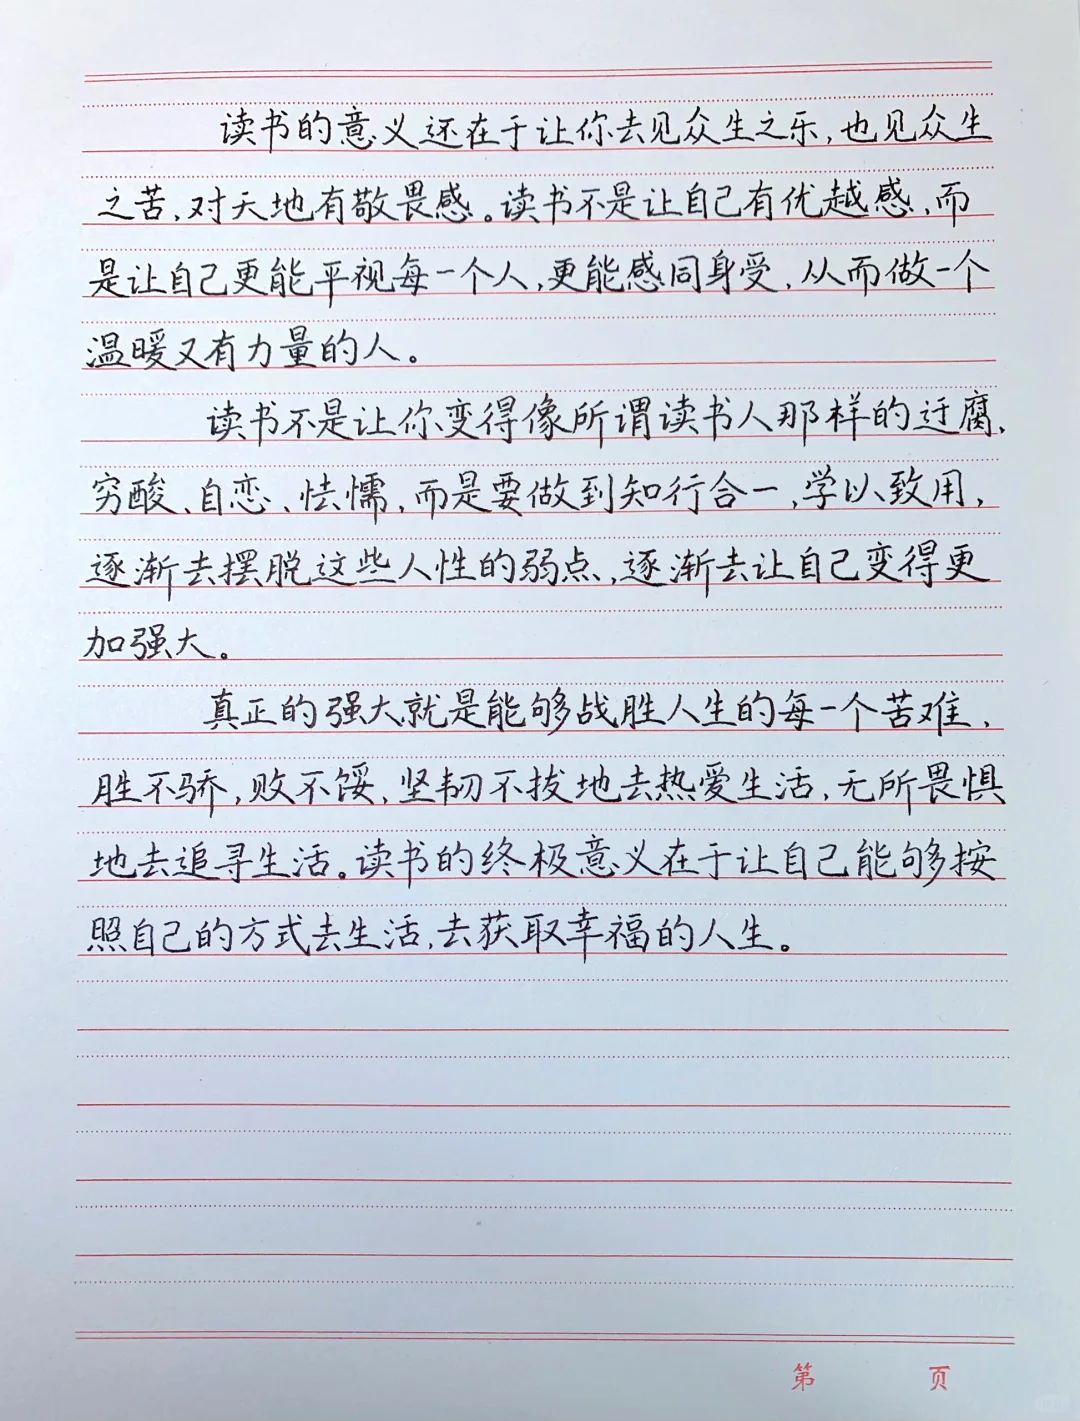 读书的意义还在于让你去见众生之乐,也见众生
之苦,对天地有敬畏感。读书不是让自己有优越感,而
是让自己更能平视每一个人,更能感同身受,从而做一个
温暖又有力量的人。
读书不是让你变得像所谓读书人那样的迂腐、
穷酸、自恋、怯懦,而是要做到知行合一,学以致用,
逐渐去摆脱这些人性的弱点,逐渐去让自己变得更
加强大。
真正的强大就是能够战胜人生的每一个苦难,
胜不骄,败不馁,坚韧不拔地去热爱生活,无所畏惧
地去追寻生活。读书的终极意义在于让自己能够按
照自己的方式去生活,去获取幸福的人生。
第 页